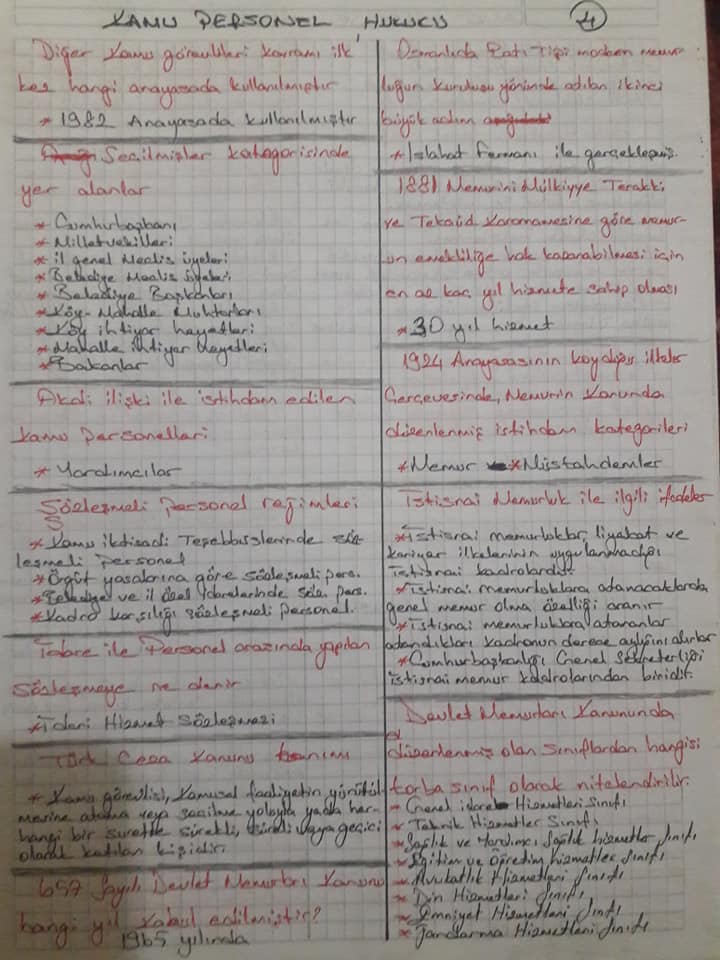 KAMU PERSONEL HUKUCU
4
Diğer Kamu görevlileri kavramı ilk
kez hangi anayasada kullanılmıştır
* 1982 Anayasada kullanılmıştır
Seçilmişler kategorisinde
yer alanlar
* Cumhurbaşkanı
* Milletvekilleri
* il genel Meclis üyeleri
* Belediye Meclis üyeleri
* Belediye Başkanları
* Köy-Mahalle Muhtarları
* Köy ihtiyar heyetleri
* Mahalle ihtiyar heyetleri
* Bakanlar
Akdi ilişki ile istihdam edilen
kamu personelleri
* Yardımcılar
Sözleşmeli Personel rejimleri
* Kamu iktisadi Teşebbüslerinde söz-
leşmeli personel
* Örgüt yasalarına göre sözleşmeli pers.
* Belediye ve il özel idarelerinde söz. pers.
* Kadro karşılığı sözleşmeli personel.
İdare ile Personel arasında yapılan
Sözleşmeye ne denir
* İdari Hizmet Sözleşmesi
Türk Ceza Kanunu tanımı
* Kamu görevlisi, kamusal faaliyetin yürütül-
mesine atama veya seçilme yoluyla yada her-
hangi bir suretle sürekli, süreli veya geçici
olarak katılan kişidir.
657 Sayılı Devlet Memurları Kanunu
hangi yıl kabul edilmiştir?
1965 yılında
Osmanlıda Batı Tipi modern memur-
luğun kuruluşu yönünde atılan ikinci
büyük adım
* Islahat Fermanı ile gerçekleşmiş.
1881 Memurini Mülkiyye Terakki
ve Tekaüd Kararnamesine göre memur-
un emekliliğe hak kazanabilmesi için
en az kaç yıl hizmete sahip olması
* 30 yıl hizmet
1924 Anayasasının koyduğu ilkeler
Çerçevesinde, Memurin Kanunda
düzenlenmiş istihdam kategorileri
* Memur * Müstahdemler
İstisnai Memurluk ile ilgili ifadeler
* İstisnai memurluklar, liyakat ve
kariyer ilkelerinin uygulanmadığı
istisnai kadrolardır.
* istisnai memurluklara atanacaklarda
genel memur olma özelliği aranır
* istisnai memurluklara atananlar
atandıkları kadronun derece aylığını alırlar
* Cumhurbaşkanlığı Genel Sekreterliği
istisnai memur kadrolarından biridir.
Devlet Memurları Kanununda
düzenlenmiş olan sınıflardan hangisi
torba sınıf olarak nitelendirilir.
* Genel idare Hizmetleri Sınıfı
* Teknik Hizmetler Sınıfı
* Sağlık ve Yardımcı Sağlık hizmetler Sınıfı
* Eğitim ve Öğretim hizmetler Sınıfı
* Avukatlık Hizmetleri Sınıfı
* Din Hizmetleri Sınıfı
* Emniyet Hizmetleri Sınıfı
* Jandarma Hizmetleri Sınıfı